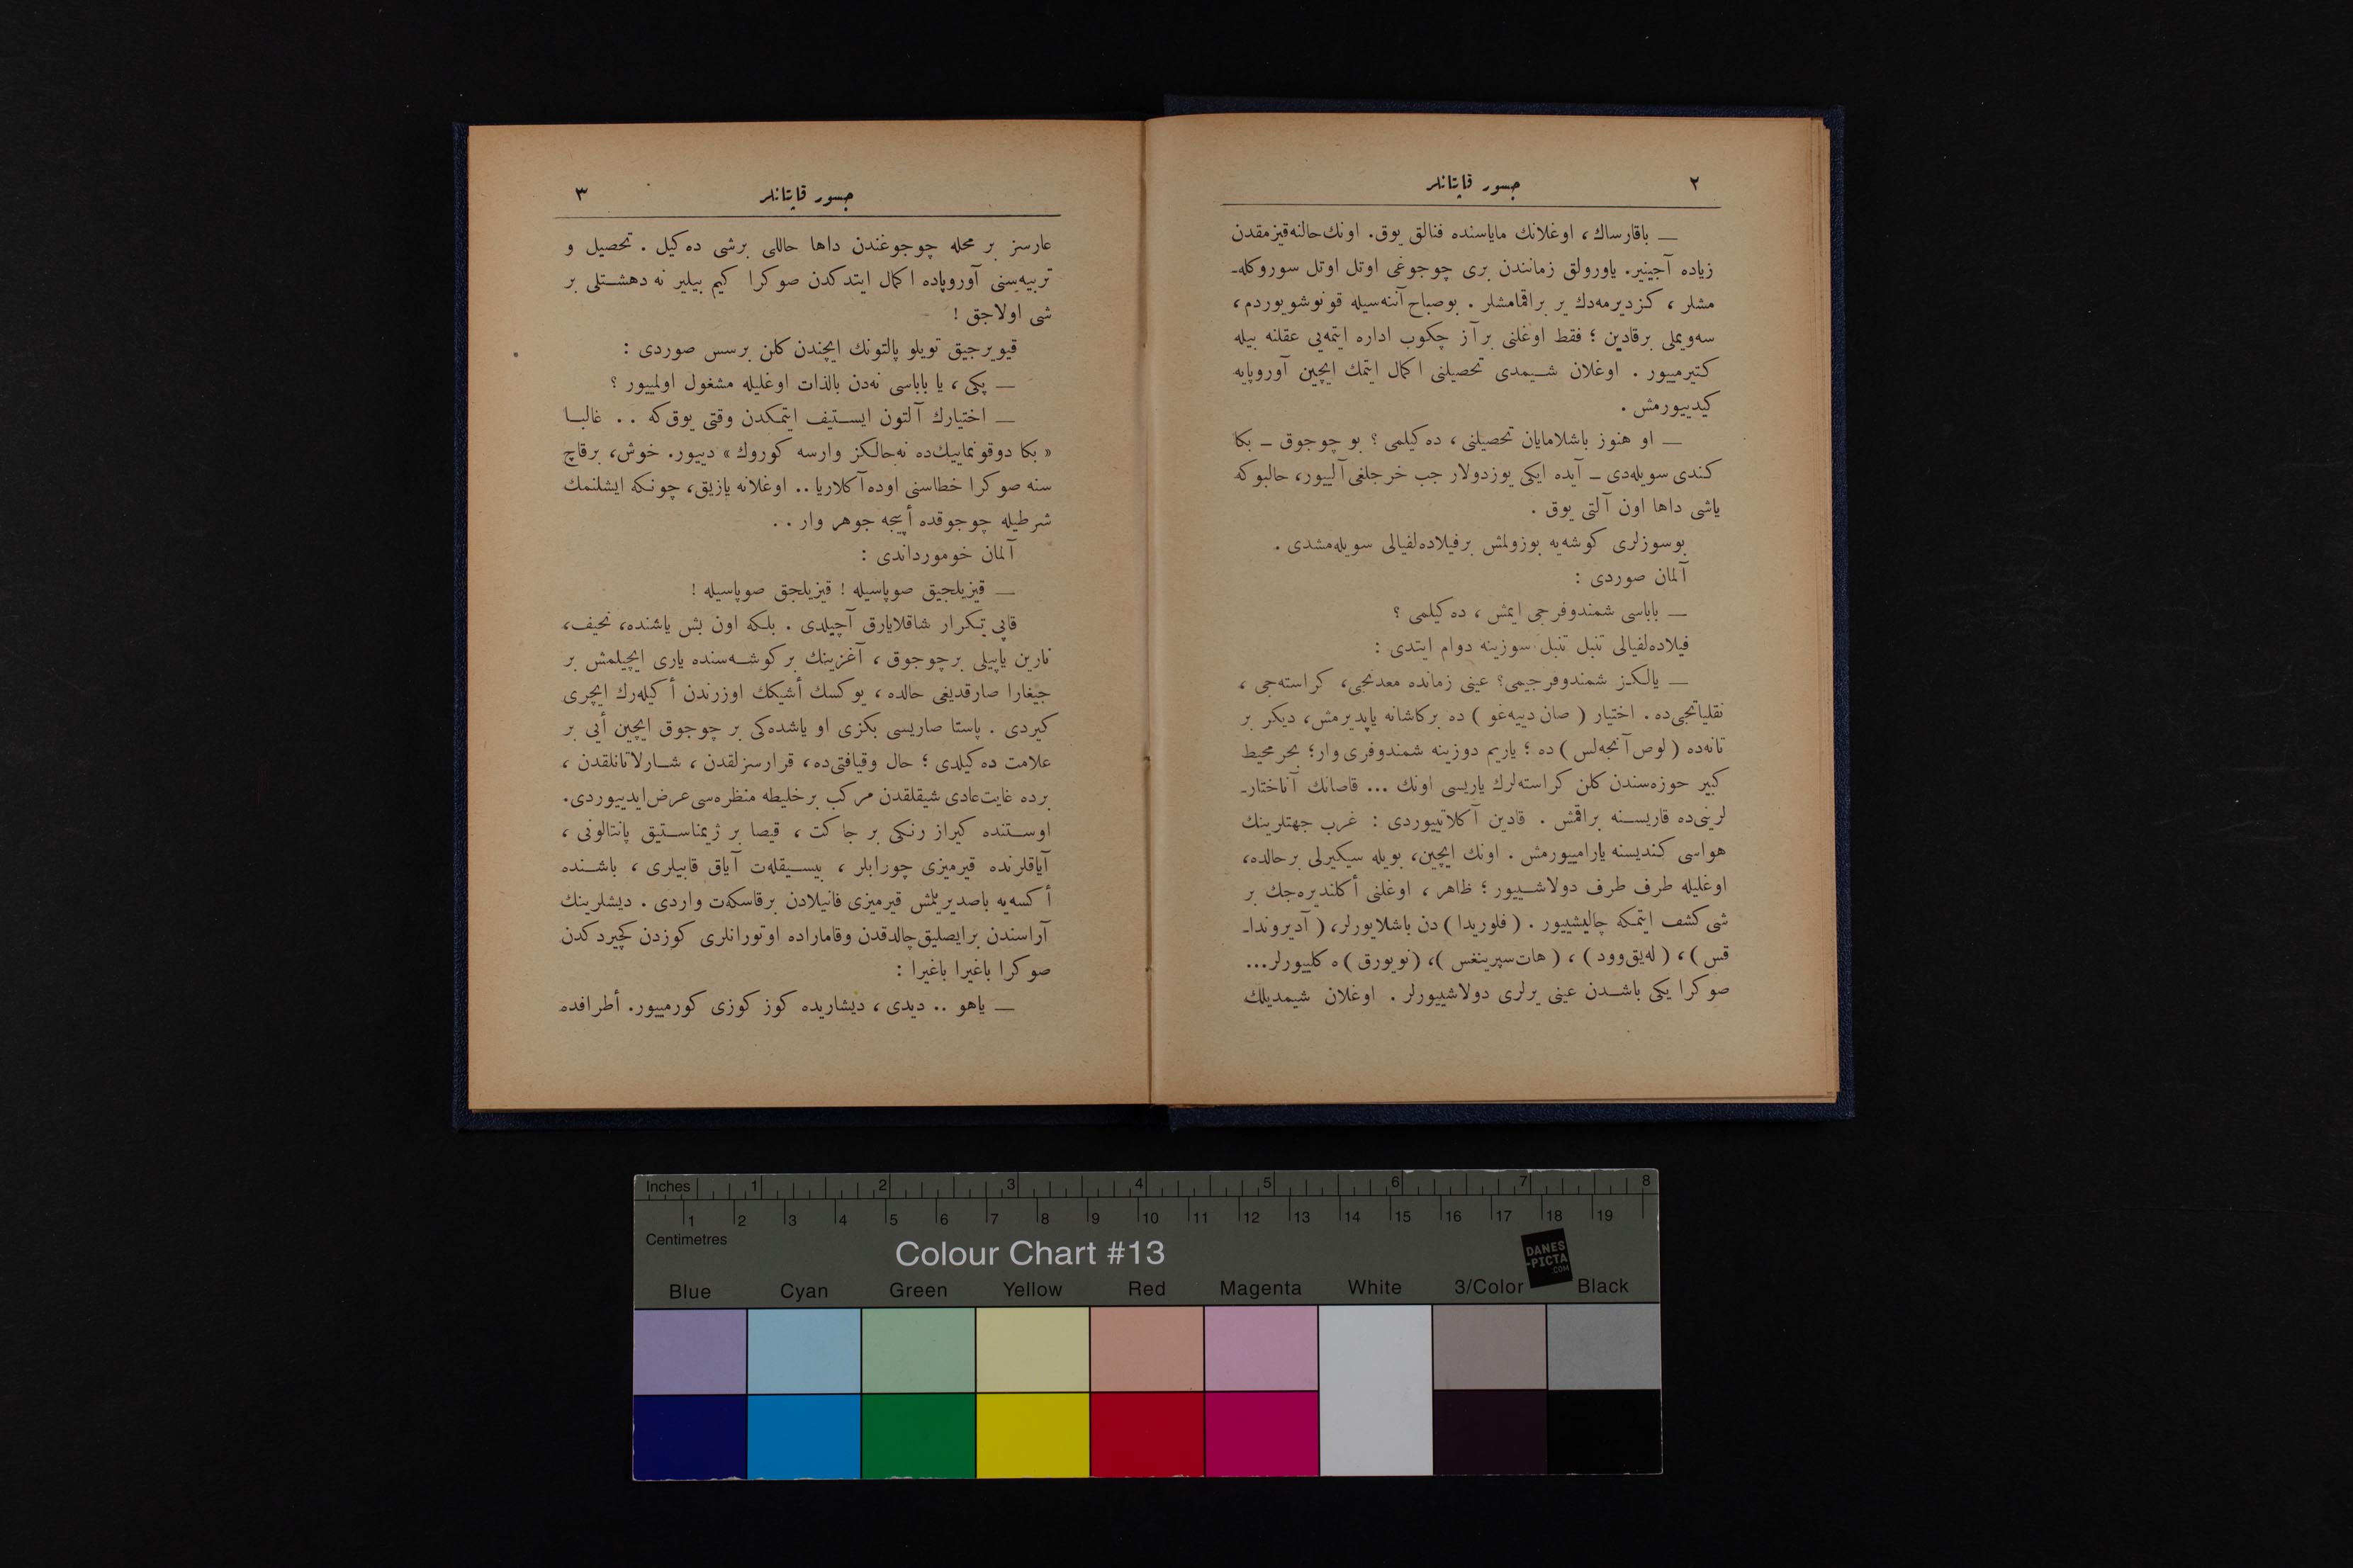 ٢
جسور قاپتانلر
— باقارساك، اوغلانك ماياسنده فنالق يوق. اونك حالنه قيزمقدن
زياده آجينير. ياورولق زمانندن برى چوجوغى اوتل اوتل سوروكله-
مشلر، كزديرمه‌دك ير براقمامشلر. بوصباح آننه‌سيله قونوشويوردم،
سه‌ويملى برقادين؛ فقط اوغلنى برآز چكوب اداره ايتمه‌يى عقلنه بيله
كتيرمييور. اوغلان شيمدى تحصيلنى اكمال ايتمك ايچين آوروپايه
كيدييورمش.
— او هنوز باشلامايان تحصيلنى، ده‌كيلمى؟ بو چوجوق — بكا
كندى سويله‌دى — آيده ايكى يوزدولار جب خرجلغى آلييور، حالبوكه
ياشى داها اون آلتى يوق.
بوسوزلرى كوشه‌يه بوزولمش برفيلاده‌لفيالى سويله‌مشدى.
آلمان صوردى:
— باباسى شمندوفرجى ايمش، ده‌كيلمى؟
فيلاده‌لفيالى تنبل تنبل سوزينه دوام ايتدى:
— يالكز شمندوفرجيمى؟ عينى زمانده معدنجى، كراسته‌جى،
نقلياتجى‌ده. اختيار (صان دييه‌غو) ده بركاشانه ياپديرمش، ديكر بر
تانه‌ده (لوص آنجه‌لس) ده؛ ياريم دوزينه شمندوفرى وار؛ بحر محيط
كبير حوزه‌سندن كلن كراسته‌لرك ياريسى اونك ... قاصانك آناختار-
لرينى‌ده قاريسنه براقمش. قادين آكلاتييوردى: غرب جهتلرينك
هواسى كنديسنه يارامييورمش. اونك ايچين، بويله سيكيرلى برحالده،
اوغليله طرف طرف دولاشييور؛ ظاهر، اوغلنى أكلنديره‌جك بر
شى كشف ايتمكه چاليشييور. (فلوريدا) دن باشلايورلر، (آديروندا-
قس)، (له‌يق‌وود)، (هات‌سپرينغس)، (نويورق)ه كلييورلر...
صوكرا يكى باشدن عينى يرلرى دولاشييورلر. اوغلان شيمديلك
جسور قاپتانلر
٣
عارسز بر محله چوجوغندن داها حاللى برشى ده‌كيل. تحصيل و
تربيه‌سنى آوروپاده اكمال ايتدكدن صوكرا كيم بيلير نه دهشتلى بر
شى اولاجق!
قيويرجيق تويلو پالتونك ايچندن كلن برسس صوردى:
— پكى، يا باباسى نه‌دن بالذات اوغليله مشغول اولمييور؟
— اختيارك آلتون ايستيف ايتمكدن وقتى يوق‌كه .. غالبا
«بكا دوقونماييك‌ده نه‌حالكز وارسه كوروك» دييور. خوش، برقاچ
سنه صوكرا خطاسنى اوده‌آكلاريا.. اوغلانه يازيق، چونكه ايشلنمك
شرطيله چوجوقده أييجه جوهر وار..
آلمان خومورداندى:
— قيزيلجيق صوپاسيله! قيزيلجق صوپاسيله!
قاپى تكرار شاقلايارق آچيلدى. بلكه اون بش ياشنده، نحيف،
نارين ياپيلى برچوجوق، آغزينك بركوشه‌سنده يارى ايچيلمش بر
جيغارا صارقديغى حالده، يوكسك أشيكك اوزرندن أكيله‌رك ايچرى
كيردى. پاستا صاريسى بكزى او ياشده‌كى بر چوجوق ايچين أيى بر
علامت ده‌كيلدى؛ حال وقيافتى‌ده، قرارسزلقدن، شارلاتانلقدن،
برده غايت‌عادى شيقلقدن مركب برخليطه منظره‌سى عرض ايدييوردى.
اوستنده كيراز رنكى بر جاكت، قيصا بر ژيمناستيق پانتالونى،
آياقلرنده قيرميزى چورابلر، بيسيقله‌ت آياق قابيلرى، باشنده
أكسه‌يه باصديريلمش قيرميزى فانيلادن برقاسكه‌ت واردى. ديشلرينك
آراسندن برايصليق‌چالدقدن وقاماراده اوتورانلرى كوزدن كچيردكدن
صوكرا باغيرا باغيرا:
— ياهو .. ديدى، ديشاريده كوز كوزى كورمييور. أطرافده
Inches 1 2 3 4 5 6 7 8
1 2 3 4 5 6 7 8 9 10 11 12 13 14 15 16 17 18 19
Centimetres
Colour Chart #13
DANES
-PICTA
.COM
Blue Cyan Green Yellow Red Magenta White 3/Color Black